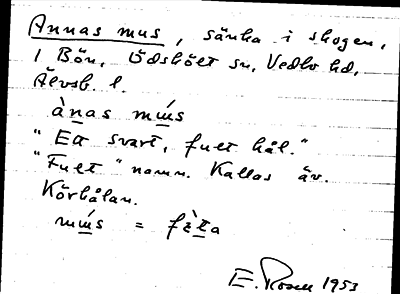 Annas mus, sänka i skogen,
i Bön, Ödskölt sn, Vedbo hd,
Älvsb. l.
ànas mús
"Ett svart, fult hål."
"Fult" namn. Kallas äv.
Körhålan.
mús = fèta
E. Rosell 1953